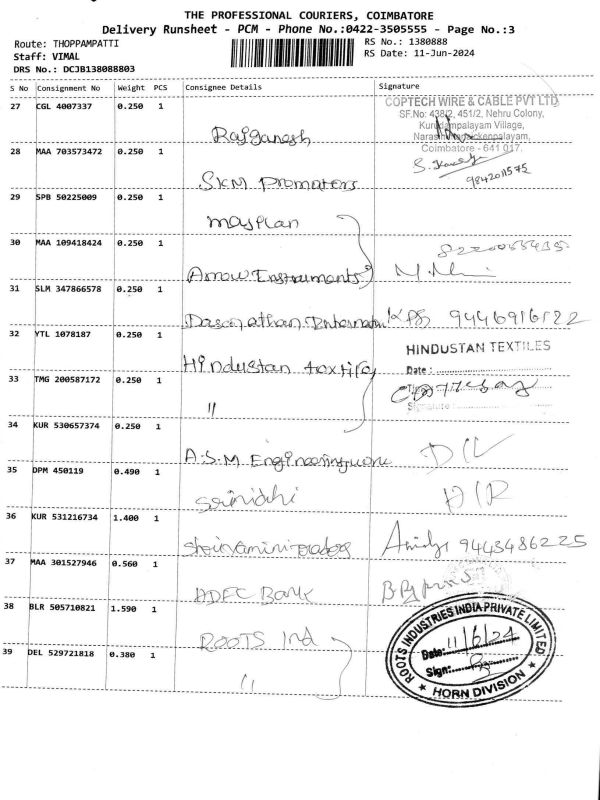 THE PROFESSIONAL COURIERS, COIMBATORE
Delivery Runsheet - PCM - Phone No.:0422-3505555 - Page No.:3
Route: THOPPAMPATTI
RS No.: 1380888
Staff: VIMAL
RS Date: 11-Jun-2024
DRS No.: DCJB138088803
S No Consignment No Weight PCS Consignee Details Signature
27 CGL 4007337 0.250 1 Rajganesh
COPTECH WIRE & CABLE PVT LTD
SF.No: 438/2, 451/2, Nehru Colony,
Kurudampalayam Village,
Coimbatore - 641 017.
28 MAA 703573472 0.250 1 SKM Promoters
9842011575
29 SPB 50225009 0.250 1 Maxplan
30 MAA 109418424 0.250 1 Arrow Instruments
31 SLM 347866578 0.250 1
32 YTL 1078187 0.250 1 Hindustan textiles
HINDUSTAN TEXTILES
Date :
Signature :
33 TMG 200587172 0.250 1 "
34 KUR 530657374 0.250 1 A.S.M Engineering work
35 DPM 450119 0.490 1 Srinidhi
36 KUR 531216734 1.400 1
9443486225
37 MAA 301527946 0.560 1 HDFC Bank
38 BLR 505710821 1.590 1 ROOTS Ind
ROOTS INDUSTRIES INDIA PRIVATE LIMITED
Date: 11/6/24
Sign:
★ HORN DIVISION ★
39 DEL 529721818 0.380 1 "